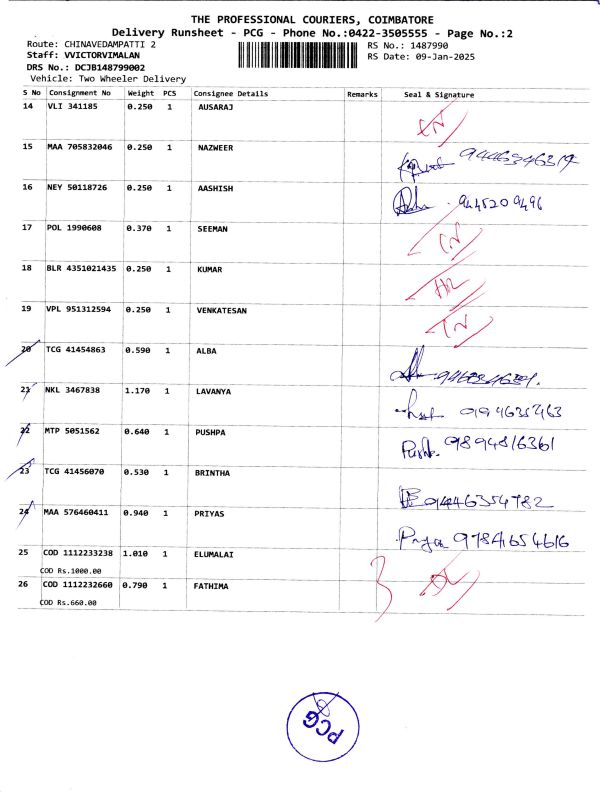 THE PROFESSIONAL COURIERS, COIMBATORE
Delivery Runsheet - PCG - Phone No.:0422-3505555 - Page No.:2
Route: CHINAVEDAMPATTI 2 RS No.: 1487990
Staff: VVICTORVIMALAN RS Date: 09-Jan-2025
DRS No.: DCJB148799002
Vehicle: Two Wheeler Delivery
S No Consignment No Weight PCS Consignee Details Remarks Seal & Signature
14 VLI 341185 0.250 1 AUSARAJ
15 MAA 705832046 0.250 1 NAZWEER
16 NEY 50118726 0.250 1 AASHISH 9445209496
17 POL 1990608 0.370 1 SEEMAN
18 BLR 4351021435 0.250 1 KUMAR
19 VPL 951312594 0.250 1 VENKATESAN
20 TCG 41454863 0.590 1 ALBA
21 NKL 3467838 1.170 1 LAVANYA
22 MTP 5051562 0.640 1 PUSHPA 9894816361
23 TCG 41456070 0.530 1 BRINTHA 9446354782
24 MAA 576460411 0.940 1 PRIYAS Priya 9784654616
25 COD 1112233238 1.010 1 ELUMALAI
COD Rs.1000.00
26 COD 1112232660 0.790 1 FATHIMA
COD Rs.660.00
PCG